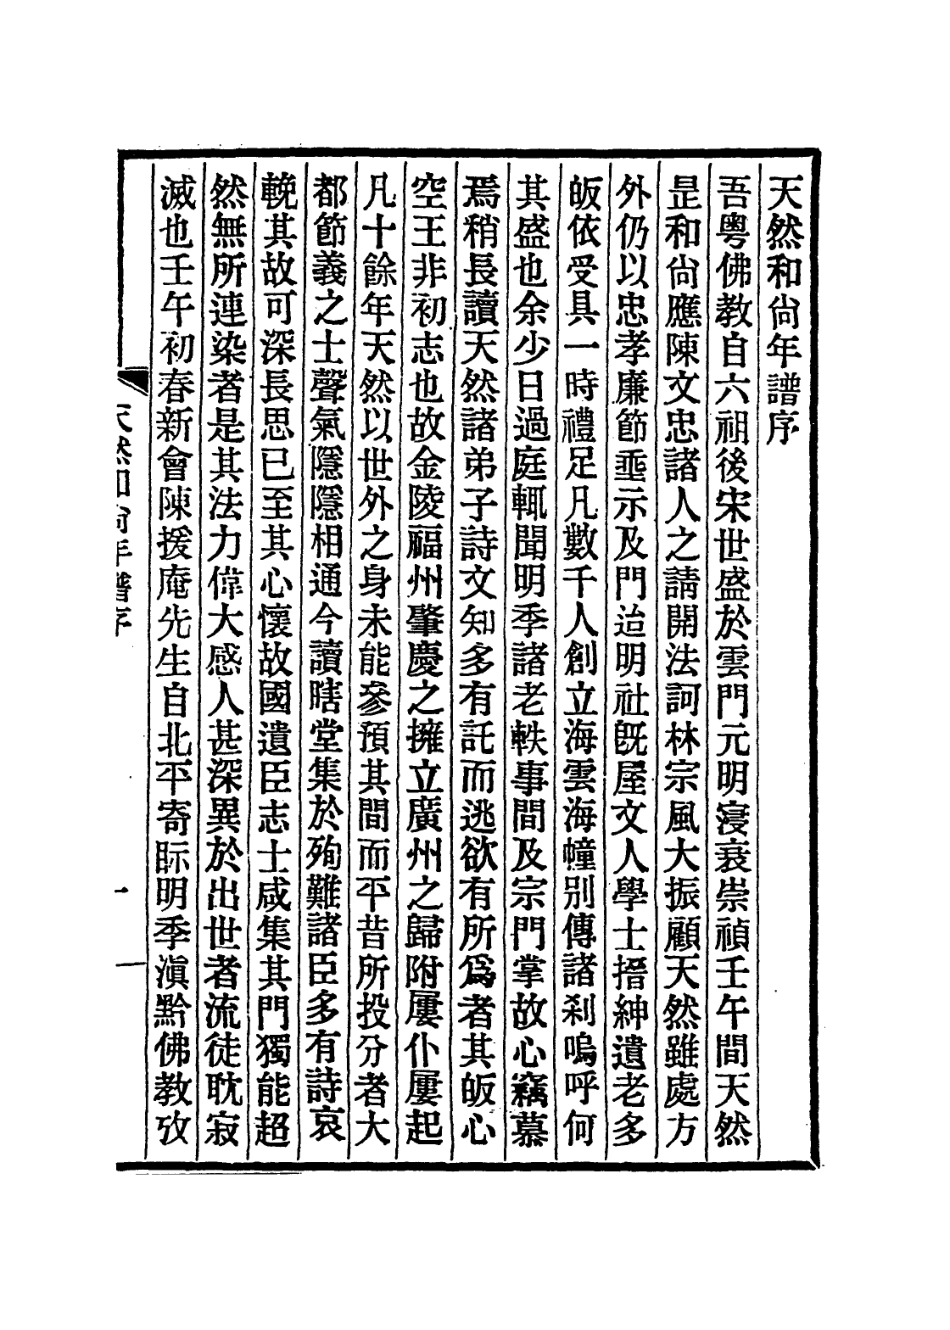 天然和尙年譜序
吾粵佛教自六祖後宋世盛於雲門元明寖衰崇禎壬午間天然
昰和尙應陳文忠諸人之請開法訶林宗風大振顧天然雖處方
外仍以忠孝廉節垂示及門迨明社旣屋文人學士搢紳遺老多
皈依受具一時禮足凡數千人創立海雲海幢別傳諸刹嗚呼何
其盛也余少日過庭輒聞明季諸老軼事間及宗門掌故心竊慕
焉稍長讀天然諸弟子詩文知多有託而逃欲有所爲者其皈心
空王非初志也故金陵福州肇慶之擁立廣州之歸附屢仆屢起
凡十餘年天然以世外之身未能參預其間而平昔所投分者大
都節義之士聲氣隱隱相通今讀瞎堂集於殉難諸臣多有詩哀
輓其故可深長思已至其心懷故國遺臣志士咸集其門獨能超
然無所連染者是其法力偉大感人甚深異於出世者流徒耽寂
滅也壬午初春新會陳援庵先生自北平寄眎明季滇黔佛教攷
天然和尙年譜序
一